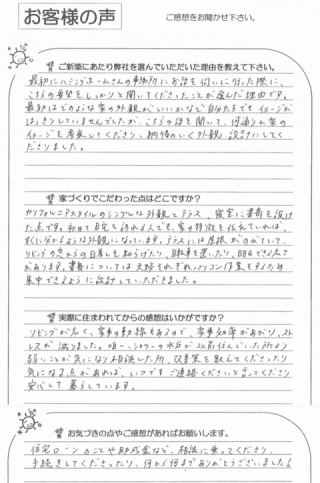 お客様の声
ご感想をお聞かせ下さい。
ご新築にあたり弊社を選んでいただいた理由を教えて下さい。
最初にハミングホームさんの事務所にお話を伺いに行った際に、
こちらの要望をしっかりと聞いてくださったことが選んだ理由です。
最初はどのような家の外観がいいかなど自分たちでもイメージが
はっきりしていませんでしたが、こちらの話を聞いて、何通りか家の
イメージを考案してくださり、納得のいく外観、設計にしてく
ださりました。
家づくりでこだわった点はどこですか？
カリフォルニアスタイルのシンプルな外観とテラス、寝室に書斎を設け
た点です。初めて自宅を訪れる人でも、家の特徴を伝えていれば、
すぐに分かるような外観になっています。テラスには屋根がついていて、
リビングの窓からの日差しを和らげたり、自転車を置いたり、BBQできる広さ
があります。書斎については夫婦それぞれパソコン作業をするため
集中できるように設計していただきました。
実際に住まわれてからの感想はいかがですか？
リビングが広く、家事の動線もあるので、家事効率があがり、スト
レスが減りました。唯一、シャワーの水圧が以前住んでいた所より
弱いことが気になり相談した所、改善策を教えてくださったり
気になる点があれば、いつでもご連絡くださいと言ってくださり
安心して暮らしています。
お気づきの点やご感想があればお願いします。
住宅ローンのことや助成金など、相談に乗ってくださり、
手続きしてくださったり、何から何までありがとうございました！